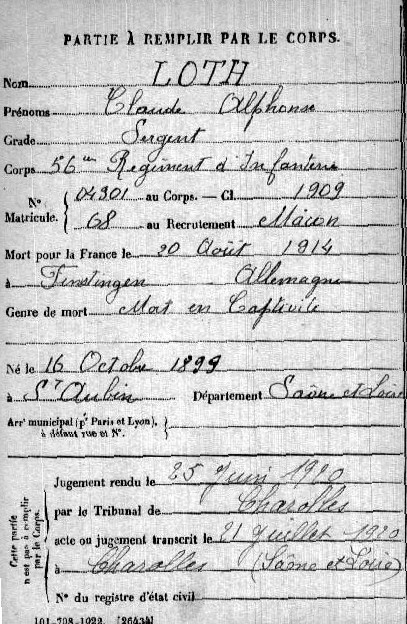 PARTIE À REMPLIR PAR LE CORPS.
Nom LOTH
Prénoms Claude Alphonse
Grade Sergent
Corps 56me Régiment d'Infanterie
N° Matricule. { 04301 au Corps. — Cl. 1909
68 au Recrutement Mâcon
Mort pour la France le 20 Août 1914
à Finstingen Allemagne
Genre de mort Mort en Captivité
Né le 16 Octobre 1899
à St Aubin Département Saône et Loire
Arrt municipal (pr Paris et Lyon), à défaut rue et N°. {
Cette partie n'est pas à remplir par le Corps.
Jugement rendu le 25 Juin 1920
par le Tribunal de Charolles
acte ou jugement transcrit le 21 Juillet 1920
à Charolles (Saône et Loire)
N° du registre d'état civil
101-708-1922. [26434]